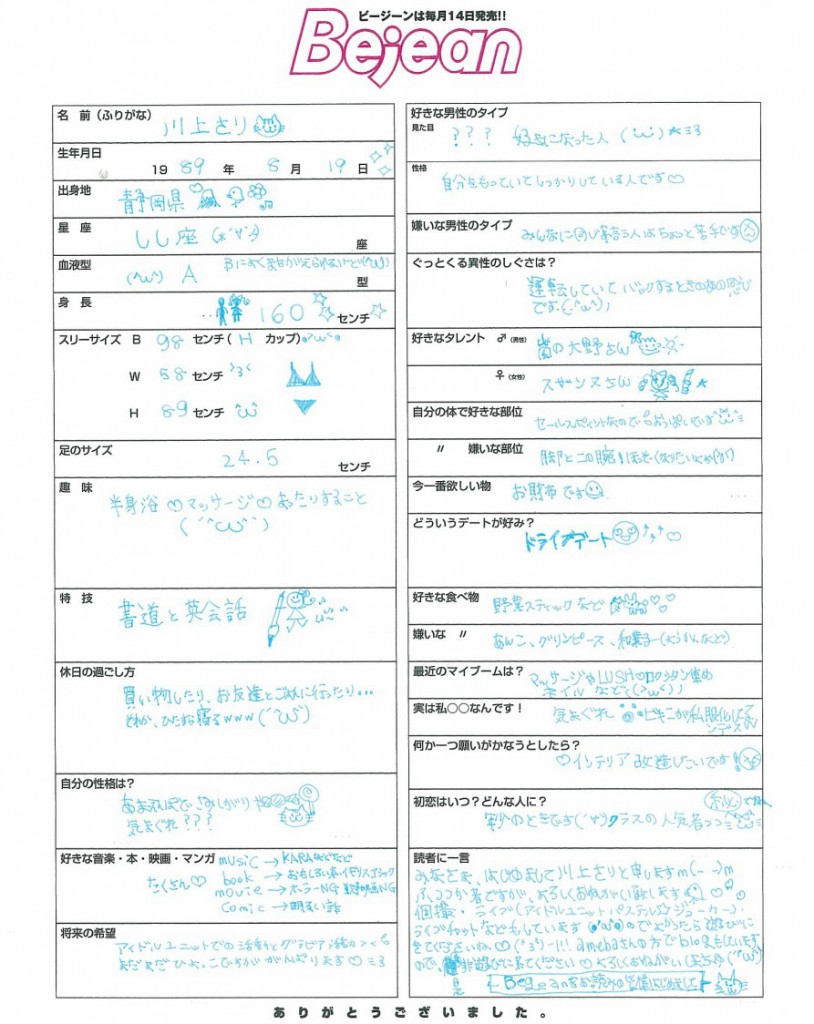 ビージーンは毎月14日発売!!
Bejean
名 前(ふりがな)
川上さり
生年月日
1989年8月19日
出身地
静岡県
星 座
しし座
座
血液型
A
型
身 長
160
センチ
スリーサイズ B 98 センチ( H カップ)
W 58 センチ
H 89 センチ
足のサイズ
24.5
センチ
趣 味
半身浴♡マッサージ♡
すること
特 技
書道と英会話
休日の過ごし方
買い物したり、お友達とごはん行ったり...
ひたすら寝るwww
自分の性格は?
気まぐれ???
好きな音楽・本・映画・マンガ
たくさん♡
music → KARAなどなど
book → おもしろい本・イギリス
movie → ホラーNG
comic → 明るい話
将来の希望
アイドルユニットでの活動とグラビア活動
まだまだひよっこですががんばります♡
好きな男性のタイプ
見た目
??? 好きになった人
性格
自分をもっていてしっかりしている人です♡
嫌いな男性のタイプ
みんなに同じ事言う人はちょっと苦手です
ぐっとくる異性のしぐさは?
運転していてバックするときの
です。
好きなタレント ♂(男性)
嵐の大野さん
♀(女性)
スザンヌさん
自分の体で好きな部位
セールスポイントなのでおっぱいです
〃 嫌いな部位
脚と二の腕!
今一番欲しい物
お財布です
どういうデートが好み?
ドライブデート
好きな食べ物
野菜スティックなど
嫌いな 〃
あんこ、グリンピース、和菓子(ようかんなど)
最近のマイブームは?
マッサージやLUSH♡ロクシタン集め
ネイルなど
実は私〇〇なんです!
気まぐれ
ビキニが私服化してる
ンデス
何か一つ願いがかなうとしたら?
♡インテリア改造したいです
初恋はいつ?どんな人に?
のときです
クラスの人気者
読者に一言
みなさま、はじめまして川上さりと申しますm(--)m
ふつつか者ですが、よろしくおねがい致します
個撮・ライブ(アイドルユニットパステル☆ジョーカー)・
ライブチャットなどもしています
のでよかったら遊びに
きてくださいね♡
amebaさんの方でblogもしています
ので、是非遊びに来てください♡よろしくおねがいします
Bejeanをお読みの皆様はじめまして
ありがとうございました。